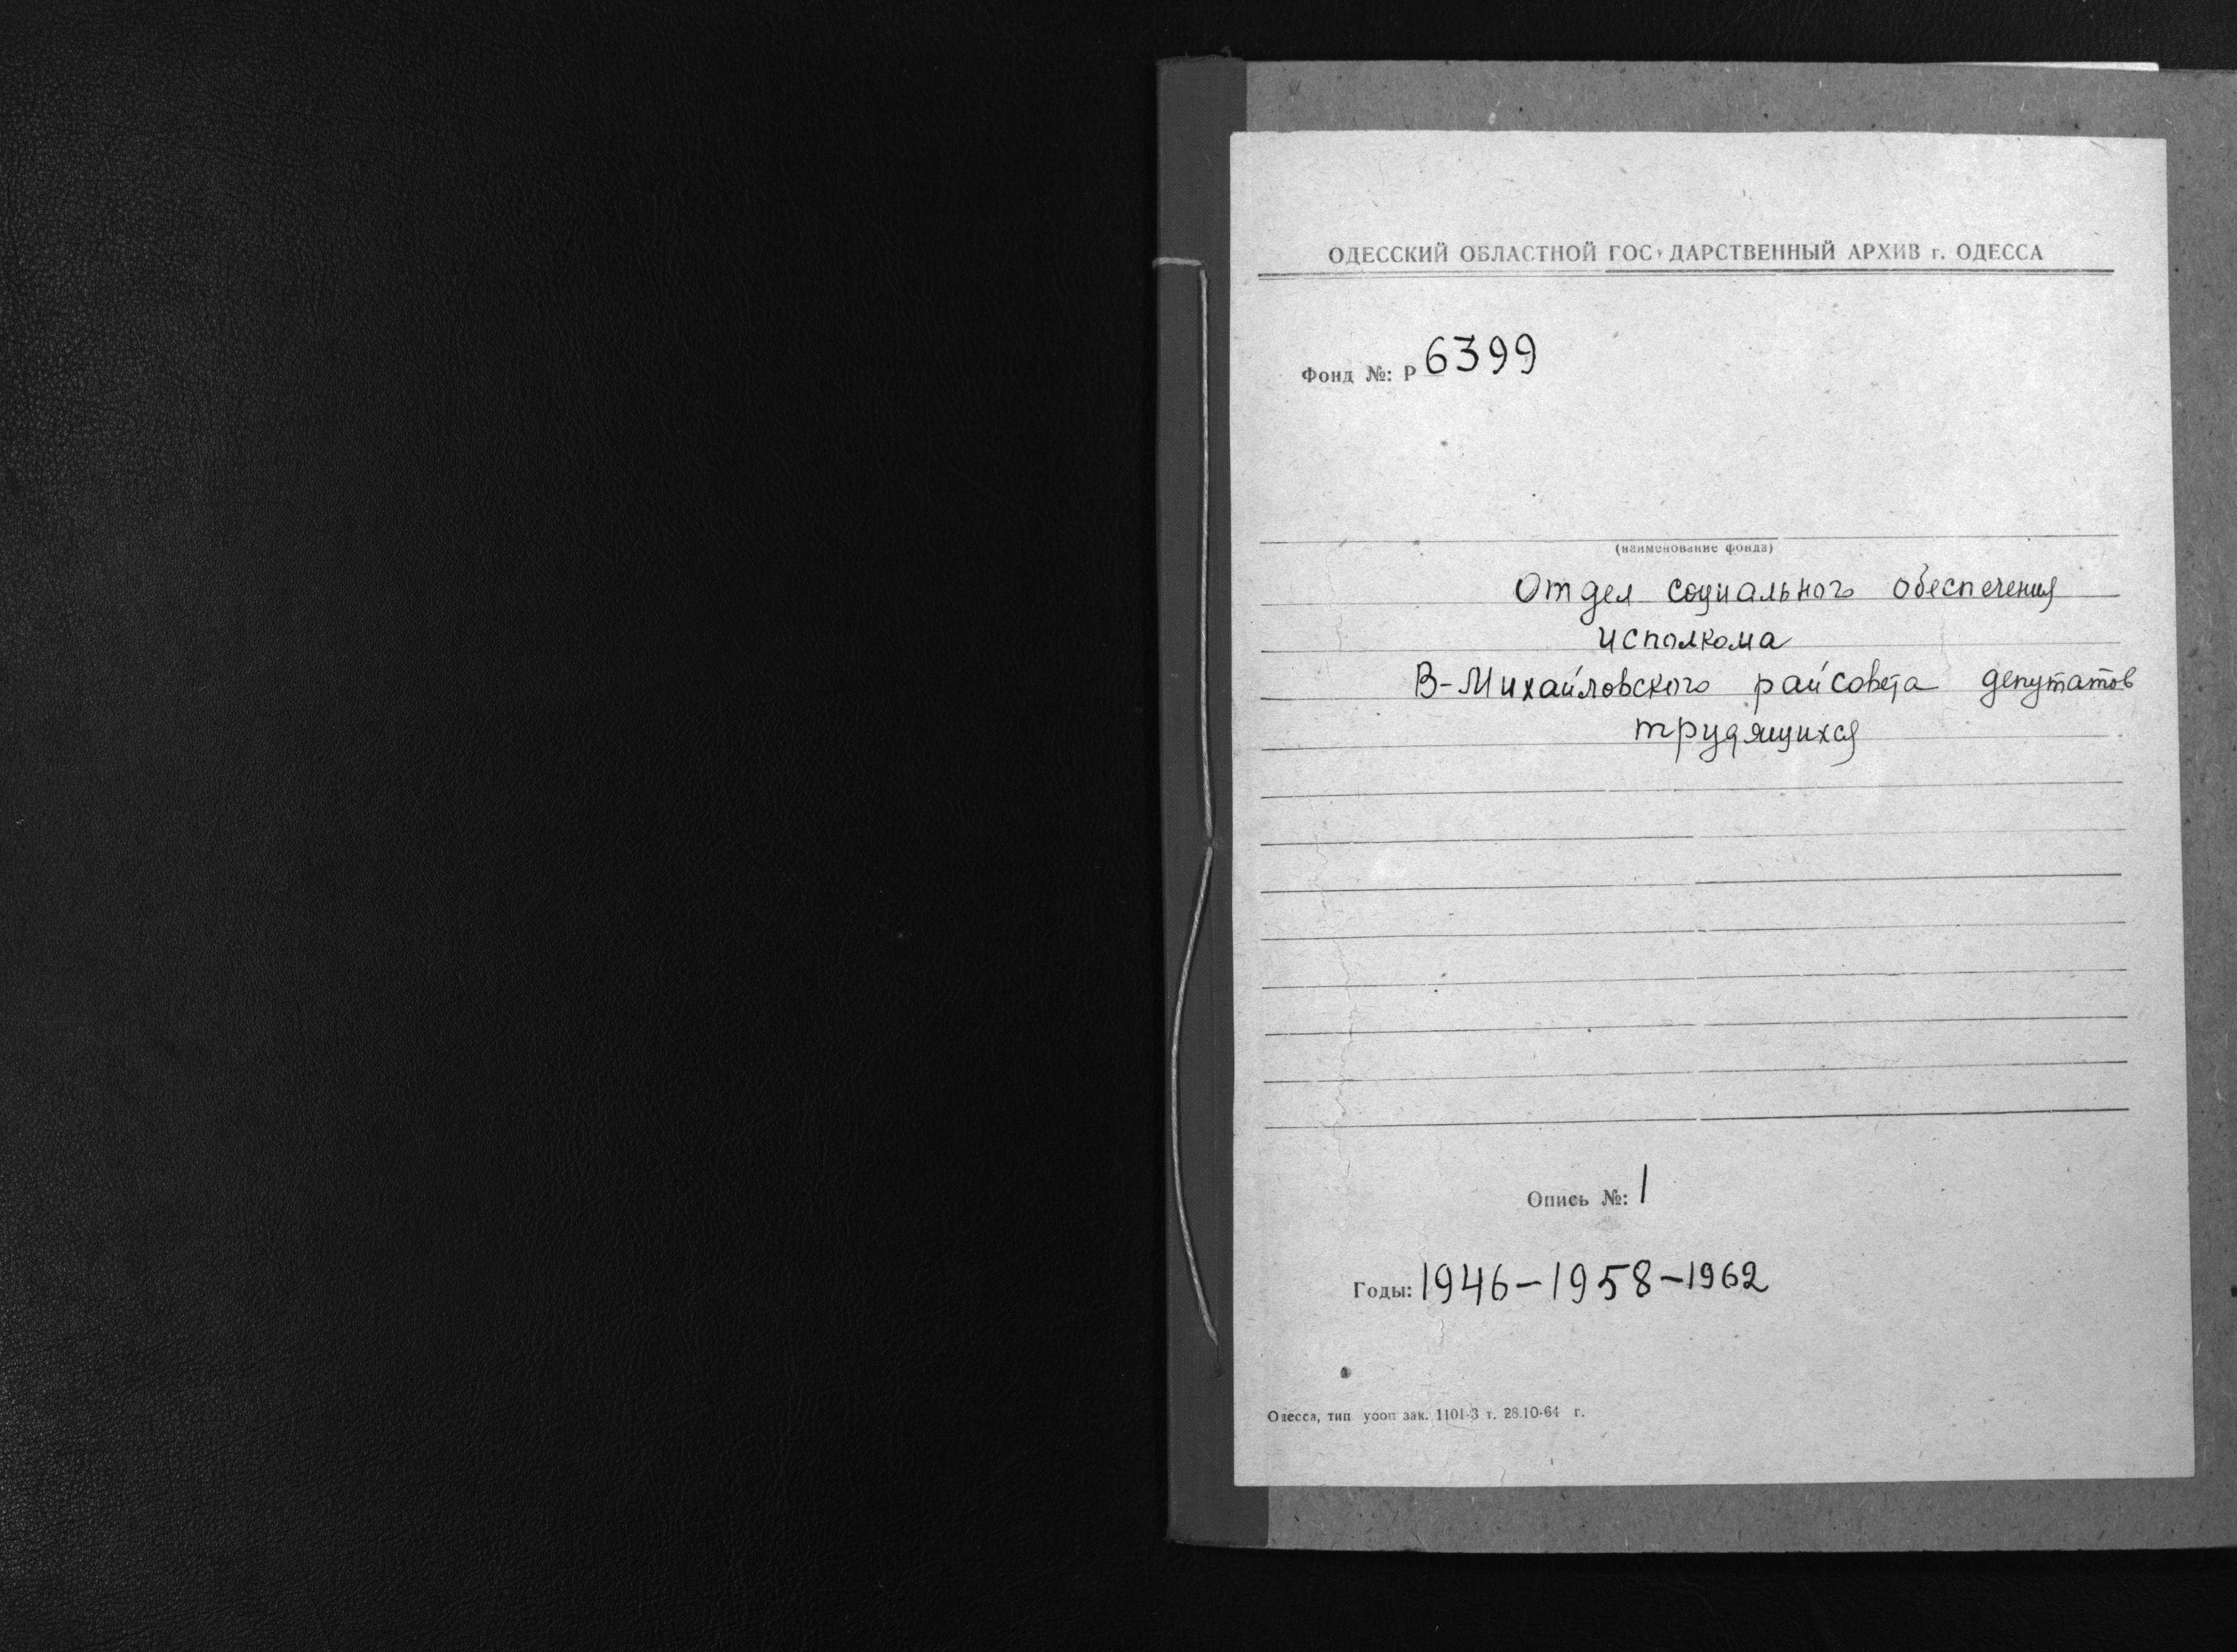 ОДЕССКИЙ ОБЛАСТНОЙ ГОСУДАРСТВЕННЫЙ АРХИВ г. ОДЕССА
Фонд №: Р 6399
(наименование фонда)
Отдел социального обеспечения
исполкома
В-Михайловского райсовета депутатов
трудящихся
Опись №: 1
Годы: 1946-1958-1962
Одесса, тип уооп зак. 1101-3 т. 28.10-64 г.